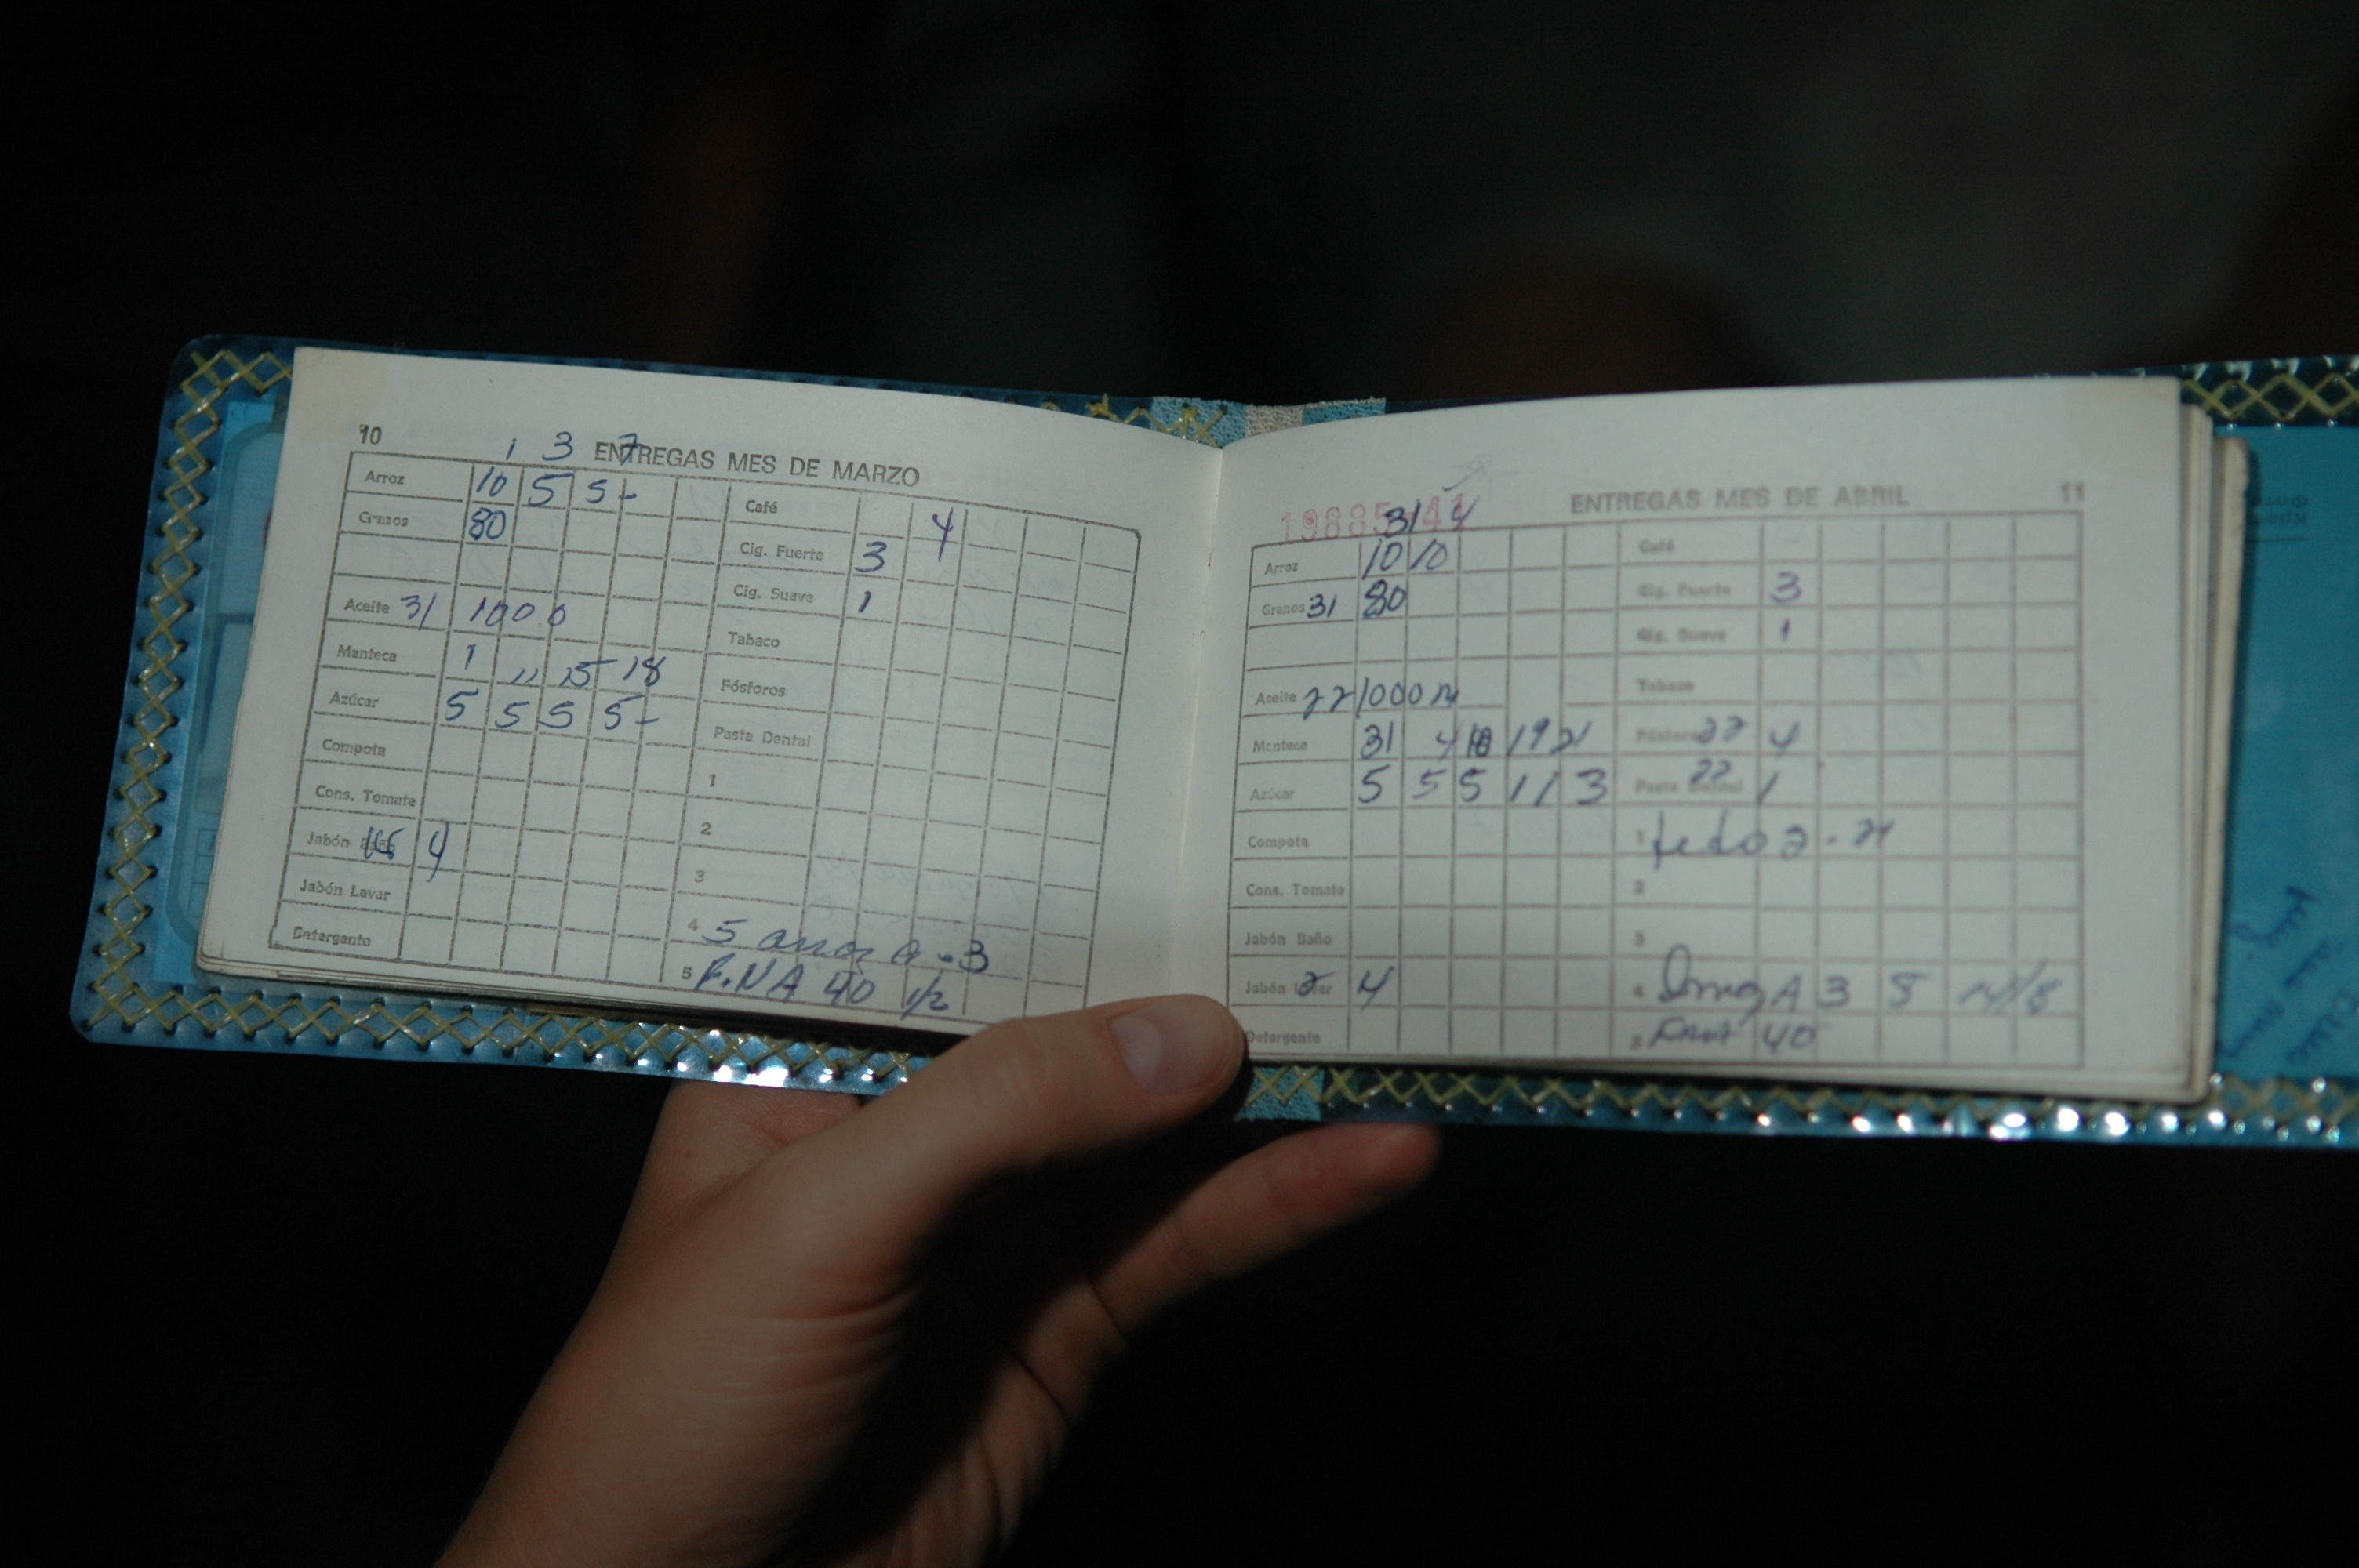 10
1 3 7
ENTREGAS MES DE MARZO
Arroz 10 5 5 -
Granos 80
Aceite 31 1000
Manteca 1 11 15 18
Azúcar 5 5 5 5 -
Compota
Cons. Tomate
Jabón Baño 4
Jabón Lavar
Detergente
Café 4
Cig. Fuerte 3
Cig. Suave 1
Tabaco
Fósforos
Pasta Dental
1
2
3
4 5 arroz A - 3
5 F.NA 40 1/2
ENTREGAS MES DE ABRIL 11
31 4
Arroz 10 10
Granos 31 80
Aceite 22 1000
Manteca 31 4 18 19 21
Azúcar 5 5 5 1 1 3
Compota
Cons. Tomate
Jabón Baño
Jabón Lavar 2 4
Detergente
Café
Cig. Fuerte 3
Cig. Suave 1
Tabaco
Fósforos 22 4
Pasta Dental 22 1
1
2
3
4 A 3 5
5 40